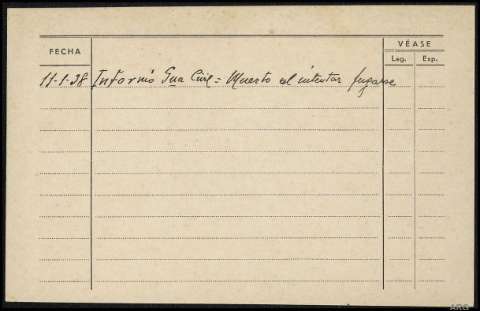 FECHA
VÉASE
Leg. Exp.
11-1-38 Informó Gua Civil = Muerto al intentar fugarse
ARG